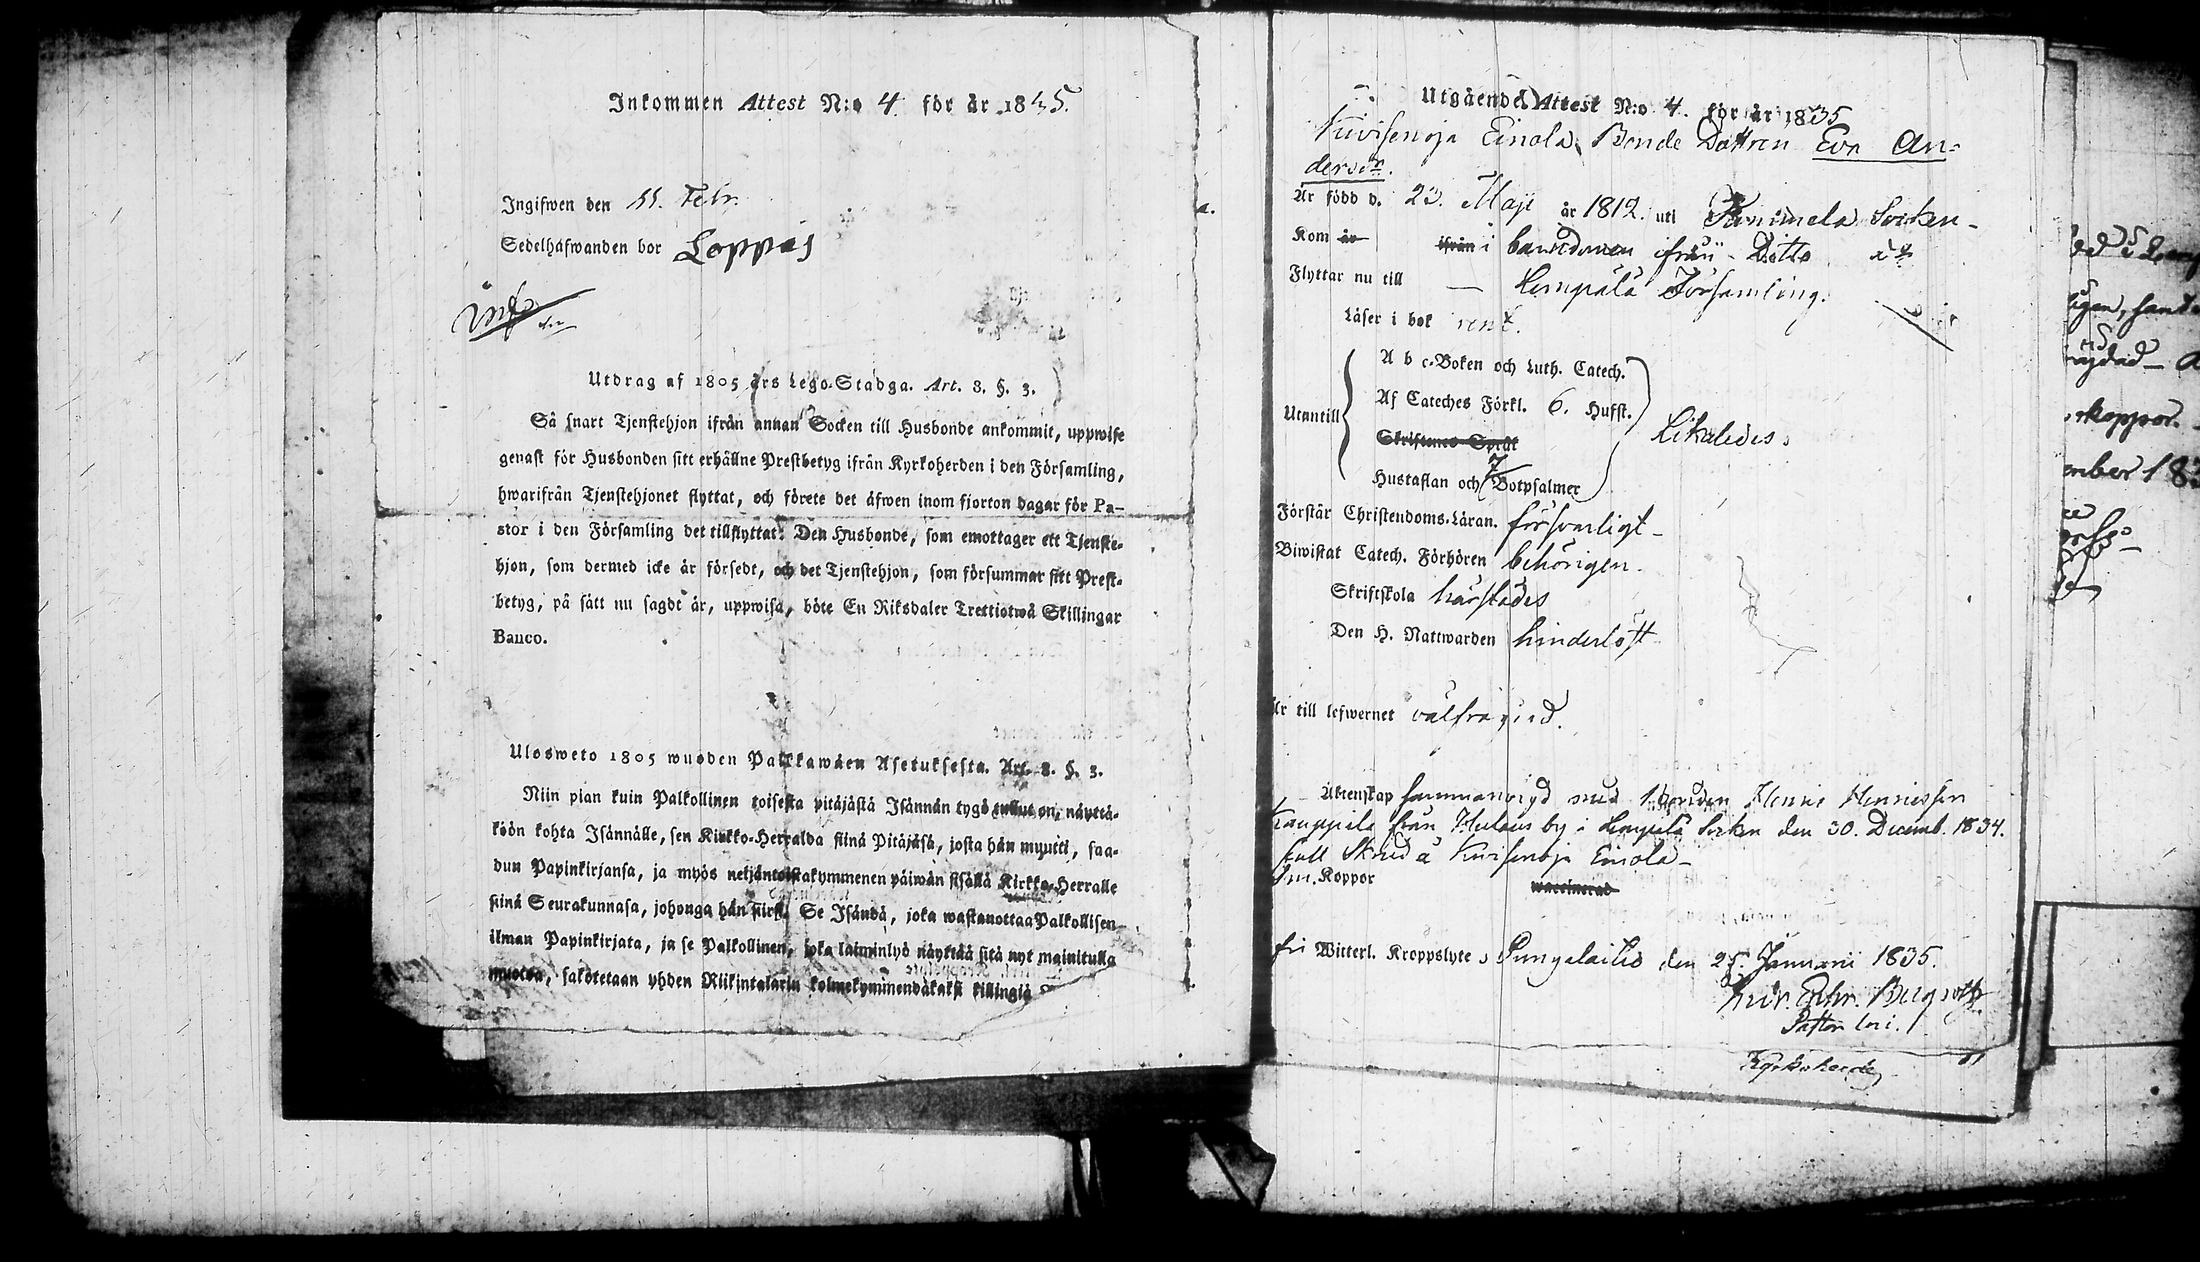 Inkommen Attest N:o 4 för år 1835.
Ingifwen den 11. Febr.
Sedelhafwanden bor Loppas
Utdrag af 1805 års Lego-Stadga. Art. 8. §. 3.
Så snart Tjenstehjon ifrån annan Socken till Husbonde ankommit, uppwise
genast för Husbonden sitt erhållne Prestbetyg ifrån Kyrkoherden i den Församling,
hwarifrån Tjenstehjonet flyttat, och förete det äfwen inom fjorton dagar för Pa-
stor i den Församling det tillflyttat. Den Husbonde, som emottager ett Tjenste-
hjon, som dermed icke är försedt, och det Tjenstehjon, som försummar sitt Prest-
betyg, på sätt nu sagdt är, uppwisa, böte En Riksdaler Trettiotwå Skillingar
Banco.
Ulosweto 1805 wuoden Palkkawäen Asetuksesta. Art. 8. §. 3.
Niin pian kuin Palkollinen toisesta pitäjästä Isännän tygö tullut on, näyttä-
köön kohta Isännälle, sen Kirkko-Herralda siinä Pitäjäsä, josta hän muutti, saa-
dun Papinkirjansa, ja myös neljäntoistakymmenen päiwän sisällä Kirkko-Herralle
siinä Seurakunnasa, johonga hän siirsi. Se Isändä, joka wastanottaa Palkollisen
ilman Papinkirjata, ja se Palkollinen, joka laiminlyö näyttää sitä nyt mainitulla
muotoa, sakotetaan yhden Riikintalarin kolmekymmendäkaksi killingiä
Utgående Attest N:o 4. för år 1835
Kuivisenoja Einola Bonde Dottren Eva An-
dersdr.
Är född d. 23. Maji år 1812. uti Pum̄mela Socken
Kom år ifrån i barndomen från Ditto
Flyttar nu till Lempälä Församling.
Läser i bok rent.
Utantill
A b c-Boken och Luth. Catech.
Af Cateches Förkl. 6. Hufst.
Skriftenes Språk
Hustaflan och 7 Botpsalmer
Likaledes.
Förstår Christendoms-Läran. försvarligt
Biwistat Catech. Förhören behörigen.
Skriftskola härstädes
Den H. Nattwarden hinderlöst
Är till lefwernet välfrägdad.
Äktenskap sammanvigd med Bonden Henric Henricsson
Kauppila från Hulaus by i Lempälä Socken den 30. Decemb. 1834.
Kuivisenoja Einola
Koppor waccinerad
fri Witterl. Kroppslyte, Pungalaitio den 25. Januarii 1835.
Bergroth
Pastor loci.
Kyrkoherde